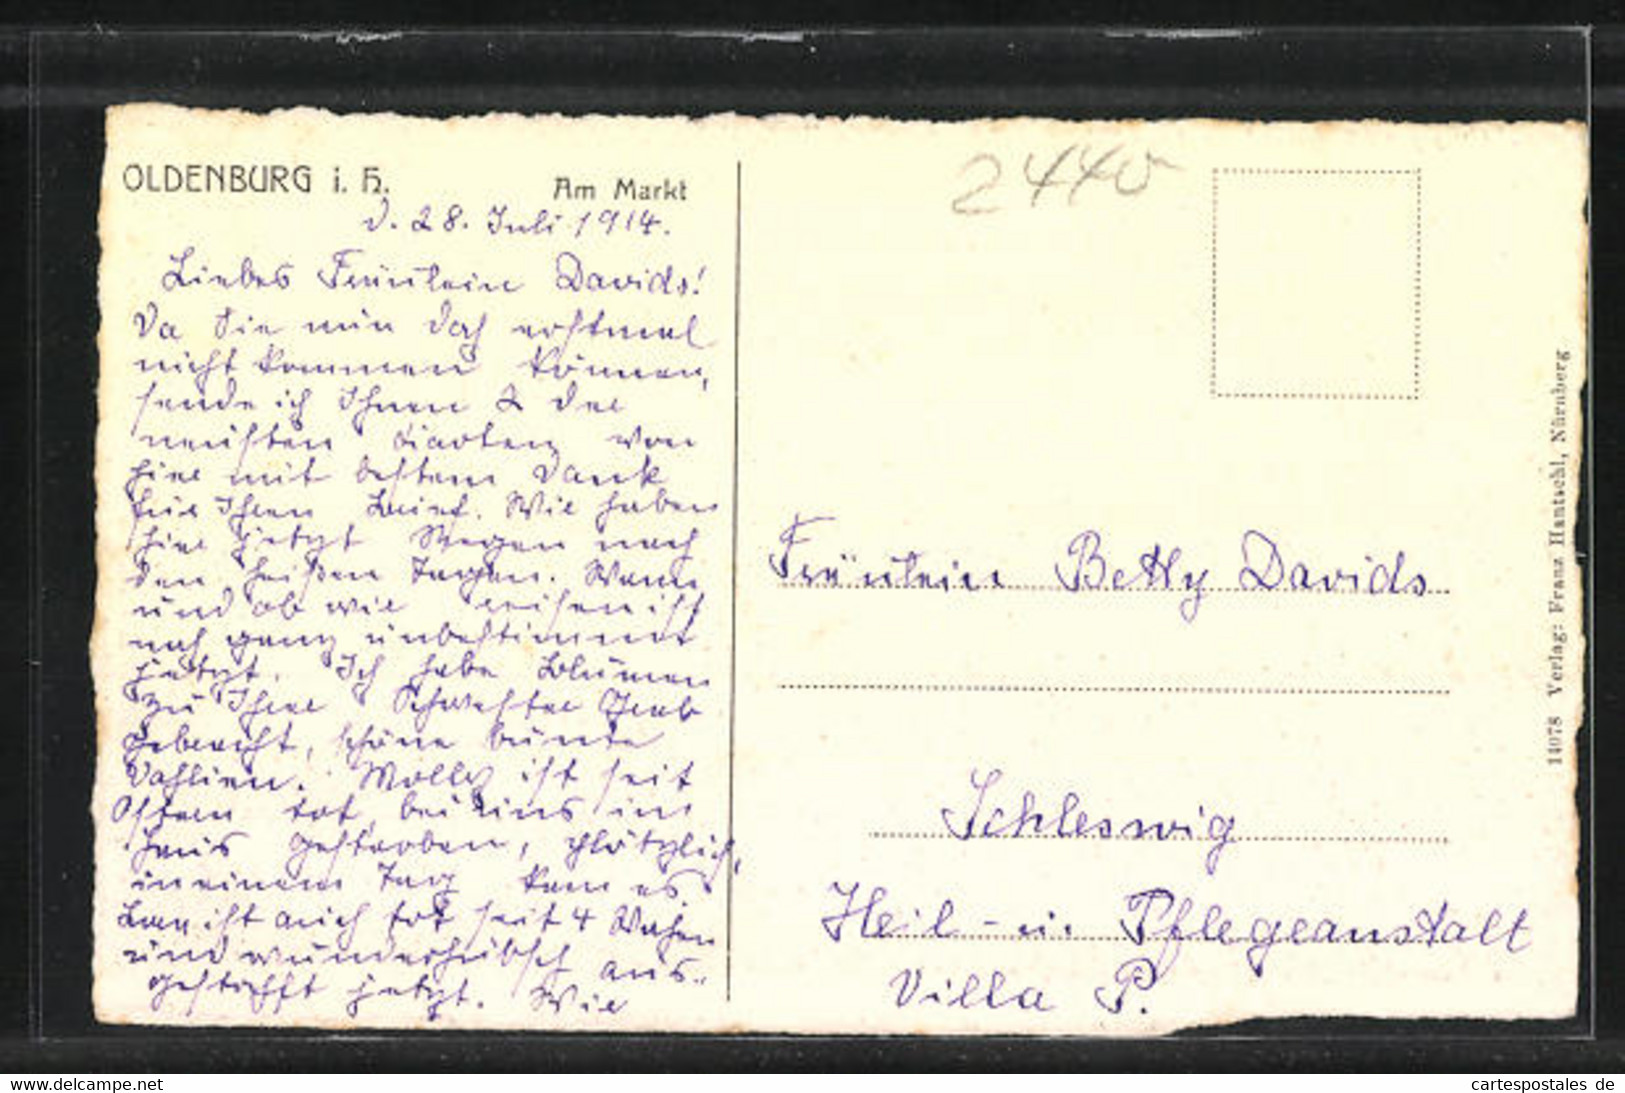 OLDENBURG i. H.
Am Markt
d. 28. Juli 1914.
Liebes Fräulein Davids!
Da Sie nun doch erstmal
nicht kommen können,
sende ich Ihnen 2 der
neusten Karten von
hier mit bestem Dank
für Ihren Brief. Wir haben
hier jetzt Regen nach
den heißen Tagen. Wann
und ob wir reisen ist
noch ganz unbestimmt
jetzt. Ich habe Blumen
zu Ihrer Schwester Grab
gebracht, schöne bunte
Dahlien. Molly ist seit
Ostern tot, bei uns im
Haus gestorben, plötzlich,
in einem Tag kam es.
ist auch tot seit 4 Wochen
und wunderhübsch aus-
gestopft jetzt. Wir
2440
Fräulein Betty Davids
Schleswig
Heil- u. Pflegeanstalt
Villa P.
14078 Verlag: Franz Hantschl, Nürnberg
www.delcampe.net
cartespostales de